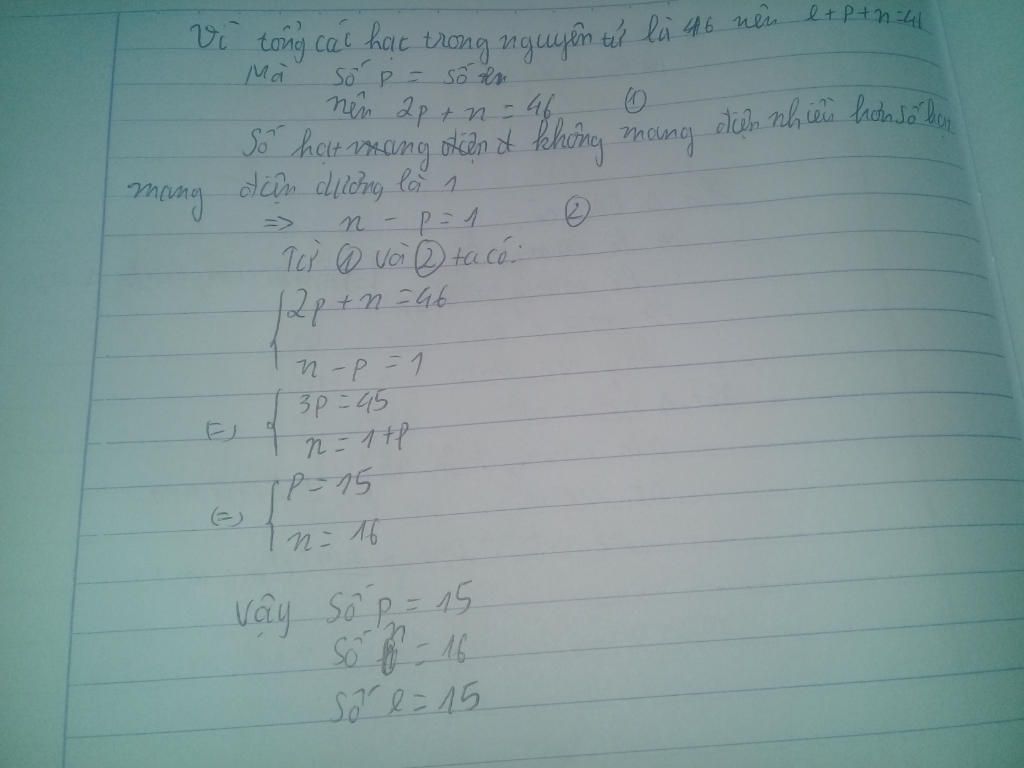 Vì tổng các hạt trong nguyên tử là 46 nên e + p + n = 46
Mà số p = số e
nên 2p + n = 46 ①
Số hạt mang điện không mang điện nhiều hơn số hạt
mang điện dương là 1
=> n - p = 1 ②
Từ ① và ② ta có:
2p + n = 46
n - p = 1
(=) 3p = 45
n = 1 + p
(=) p = 15
n = 16
Vậy Số p = 15
Số n = 16
Số e = 15